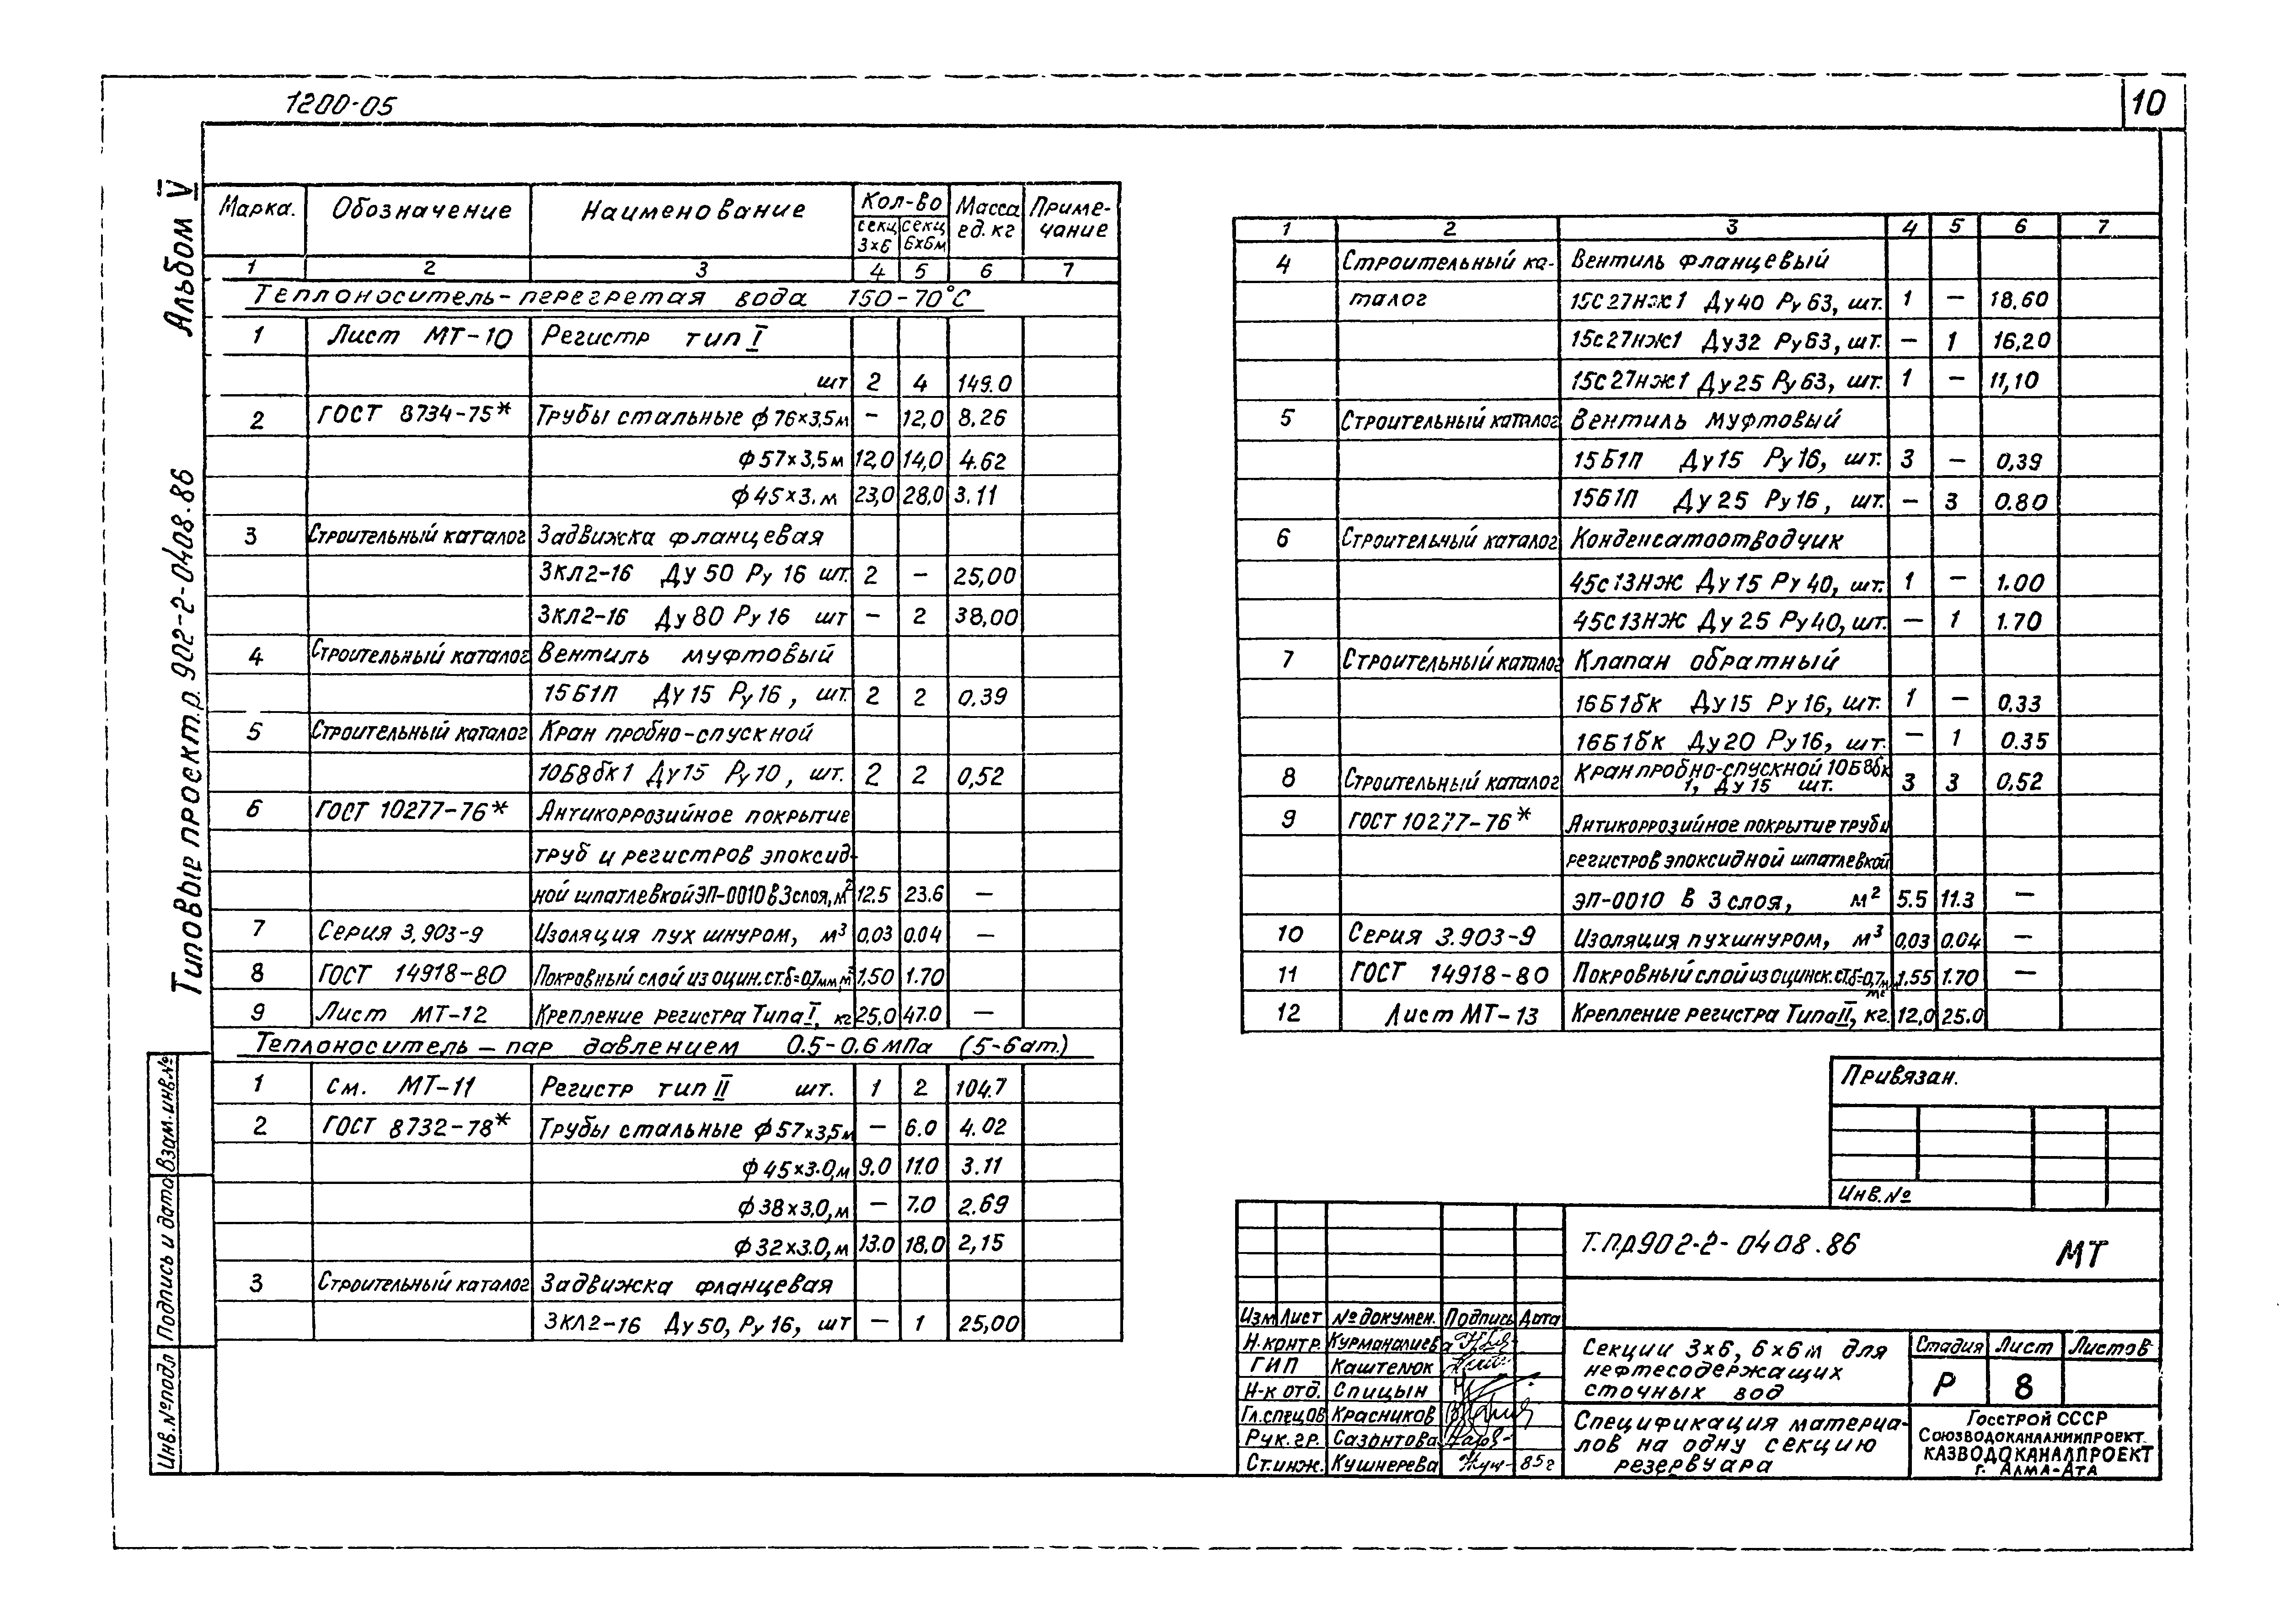 1200-05
10
Альбом V
Типовый проект.р. 902-2-0408.86
Взам.инв.№
Подпись и дата
Инв.№подл
Марка. Обозначение Наименование Кол-во Масса ед.кг Приме-чание
секц 3х6 секц 6х6м
1 2 3 4 5 6 7
Теплоноситель-перегретая вода 150-70°С
1 Лист МТ-10 Регистр тип I
шт 2 4 149.0
2 ГОСТ 8734-75* Трубы стальные ф76×3,5м - 12,0 8.26
ф57×3,5м 12,0 14,0 4.62
ф45×3.м 23,0 28,0 3.11
3 Строительный каталог Задвижка фланцевая
3кл2-16 Ду50 Ру 16 шт. 2 - 25,00
3кл2-16 Ду80 Ру16 шт - 2 38,00
4 Строительный каталог Вентиль муфтовый
15Б1п Ду15 Ру16, шт. 2 2 0,39
5 Строительный каталог Кран пробно-спускной
10Б8бк1 Ду15 Ру10, шт. 2 2 0,52
6 ГОСТ 10277-76* Антикоррозийное покрытие
труб и регистров эпоксид-
ной шпатлевкой ЭП-0010 в 3слоя, м² 12.5 23.6 —
7 Серия 3.903-9 Изоляция пух шнуром, м³ 0,03 0.04 —
8 ГОСТ 14918-80 Покровный слой из оцин.ст.б=0,7мм,м² 1,50 1.70
9 Лист МТ-12 Крепление регистра Типа I, кг 25,0 47.0 —
Теплоноситель — пар давлением 0.5-0.6 мПа (5-6 ат.)
1 см. МТ-11 Регистр тип II шт. 1 2 104.7
2 ГОСТ 8732-78* Трубы стальные ф57×3,5м — 6.0 4.02
ф45×3.0,м 9.0 11.0 3.11
ф38×3,0,м — 7.0 2.69
ф32×3.0,м 13.0 18.0 2,15
3 Строительный каталог Задвижка фланцевая
3кл2-16 Ду50, Ру16, шт — 1 25,00
1 2 3 4 5 6 7
4 Строительный ка- Вентиль фланцевый
талог 15с27нж1 Ду40 Ру63, шт. 1 — 18.60
15с27нж1 Ду32 Ру63, шт. — 1 16,20
15с27нж1 Ду25 Ру63, шт. 1 — 11,10
5 Строительный каталог Вентиль муфтовый
15Б1п Ду15 Ру16, шт. 3 — 0,39
15Б1п Ду25 Ру16, шт. — 3 0.80
6 Строительный каталог Конденсатоотводчик
45с13нж Ду15 Ру40, шт. 1 — 1.00
45с13нж Ду25 Ру40, шт. — 1 1.70
7 Строительный каталог Клапан обратный
16Б1бк Ду15 Ру16, шт. 1 — 0,33
16Б1бк Ду20 Ру16, шт. — 1 0.35
8 Строительный каталог Кран пробно-спускной 10Б8бк
1, Ду15 шт. 3 3 0,52
9 ГОСТ 10277-76* Антикоррозийное покрытие труб и
регистров эпоксидной шпатлевкой
ЭП-0010 в 3 слоя, м² 5.5 11.3 —
10 Серия 3.903-9 Изоляция пухшнуром, м³ 0,03 0.04 —
11 ГОСТ 14918-80 Покровный слой из оцинск.ст.б=0,7мм м² 1.55 1.70 —
12 Лист МТ-13 Крепление регистра Типа II, кг. 12,0 25.0
Привязан.
Инв.№
Т.п.р902-2-0408.86 МТ
Изм Лист № докумен. Подпись Дата
Н.контр. Курманалиева
ГИП Каштелюк
Н-к отд. Спицын
Гл.спецов Красников
Рук.гр. Сазонтова
Ст.инж. Кушнерева 85г
Секции 3×6, 6×6м для
нефтесодержащих
сточных вод
Стадия Лист Листов
Р 8
Спецификация материа-
лов на одну секцию
резервуара
Госстрой СССР
Союзводоканалниипроект
КАЗВОДОКАНАЛПРОЕКТ
г. Алма-Ата